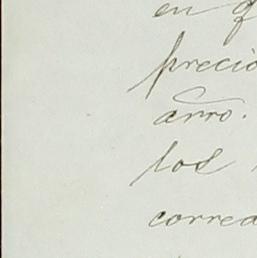 en q
precio
arro.
los
correa